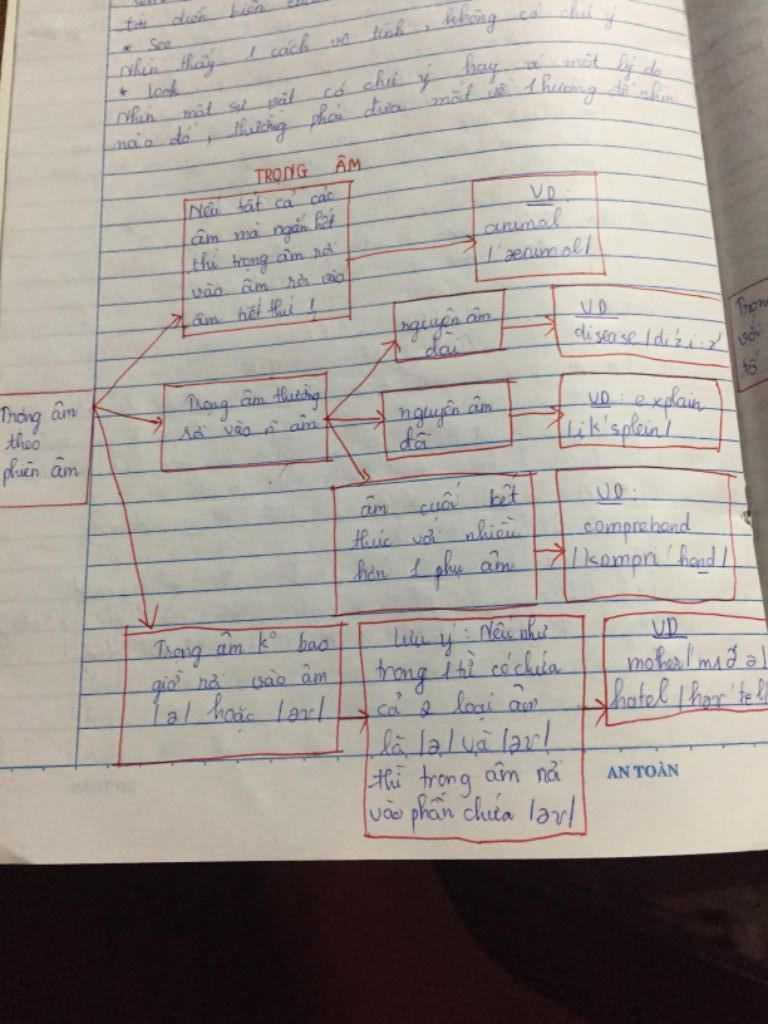 tới diễn biến
* see
Nhìn thấy 1 cách vô tình, không có chú ý
* look
Nhìn một sự vật có chú ý hay vì một lý do
nào đó, thường phải đưa mắt về 1 hướng để nhìn
TRỌNG ÂM
Nếu tất cả các
âm mà ngắn hết
thì trọng âm rơi
vào âm rơi vào
âm tiết thứ 1
VD:
animal
/'æniməl/
Trọng âm
theo
phiên âm
Trọng âm thường
rơi vào n âm
nguyên âm
dài
VD
disease /di'zi:z/
nguyên âm
đôi
VD: explain
/ik'splein/
âm cuối kết
thúc với nhiều
hơn 1 phụ âm
VD:
comprehand
/kompri'hand/
Trọng âm k° bao
giờ rơi vào âm
/ə/ hoặc /əʊ/
Lưu ý: Nếu như
trong 1 từ có chứa
cả 2 loại âm
là /ə/ và /əʊ/
thì trọng âm rơi
vào phần chứa /əʊ/
VD
mother /'mʌðə/
hotel /həʊ'tel/
Trọn
với
tố
AN TOÀN